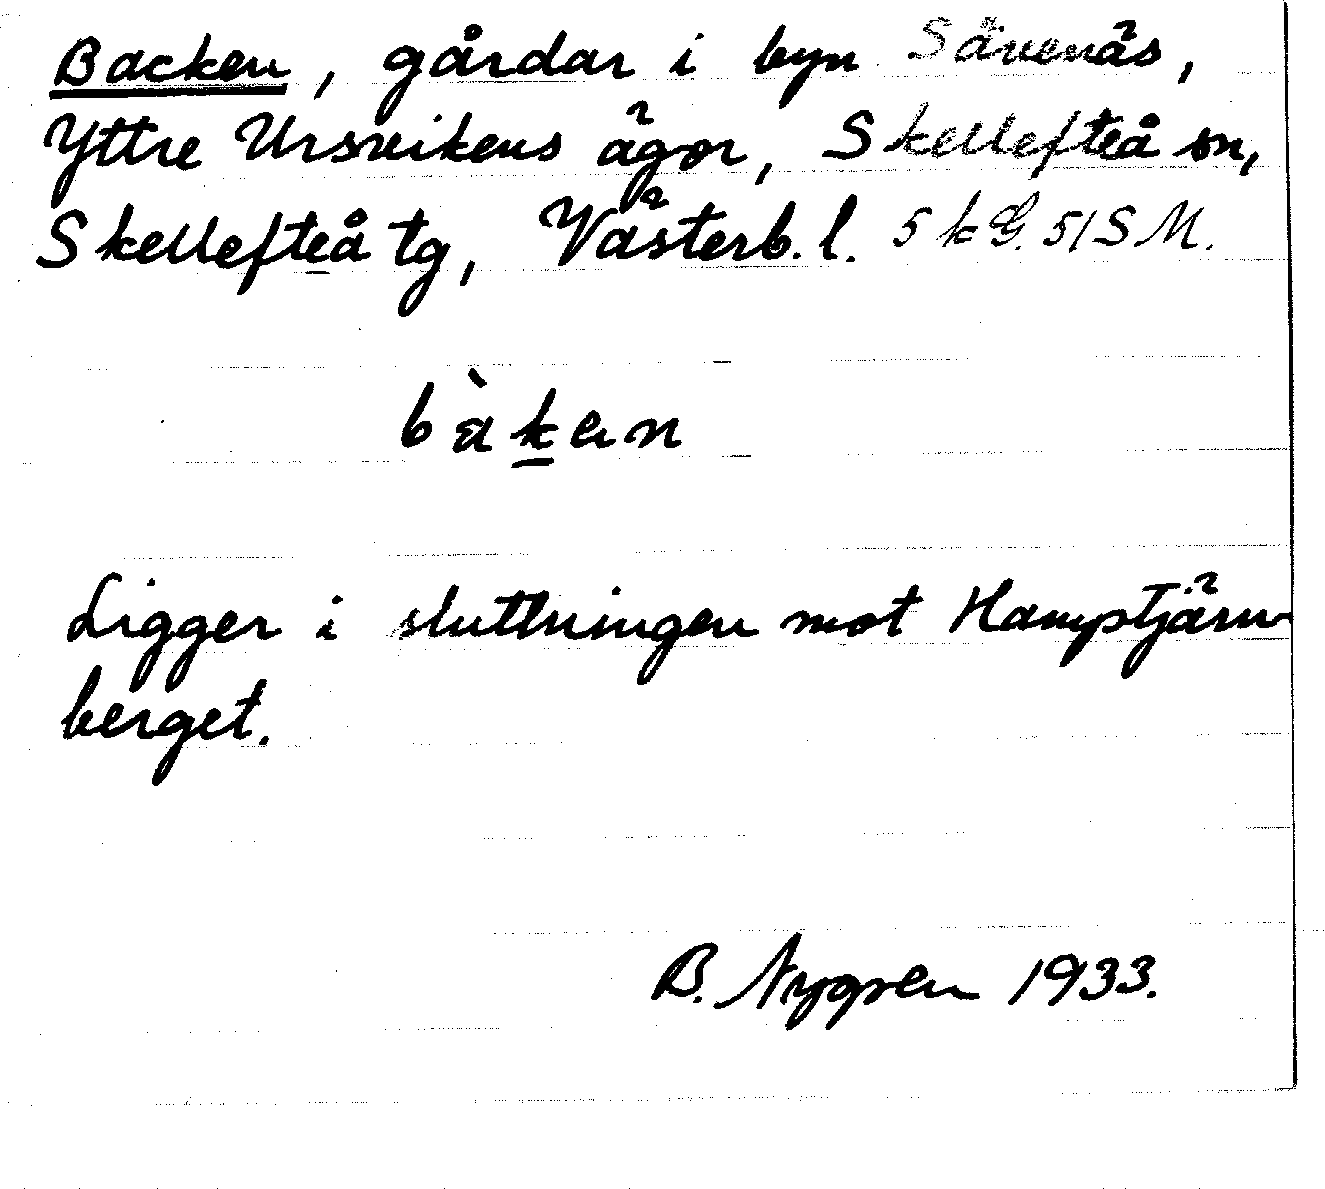 Backen, gårdar i byn Sävenäs,
Yttre Ursvikens ägor, Skellefteå sn,
Skellefteå tg, Västerb. l. 5 kG. 51 S M.
bàḵen
Ligger i sluttningen mot Hamptjärn-
berget.
B. Nygren 1933.